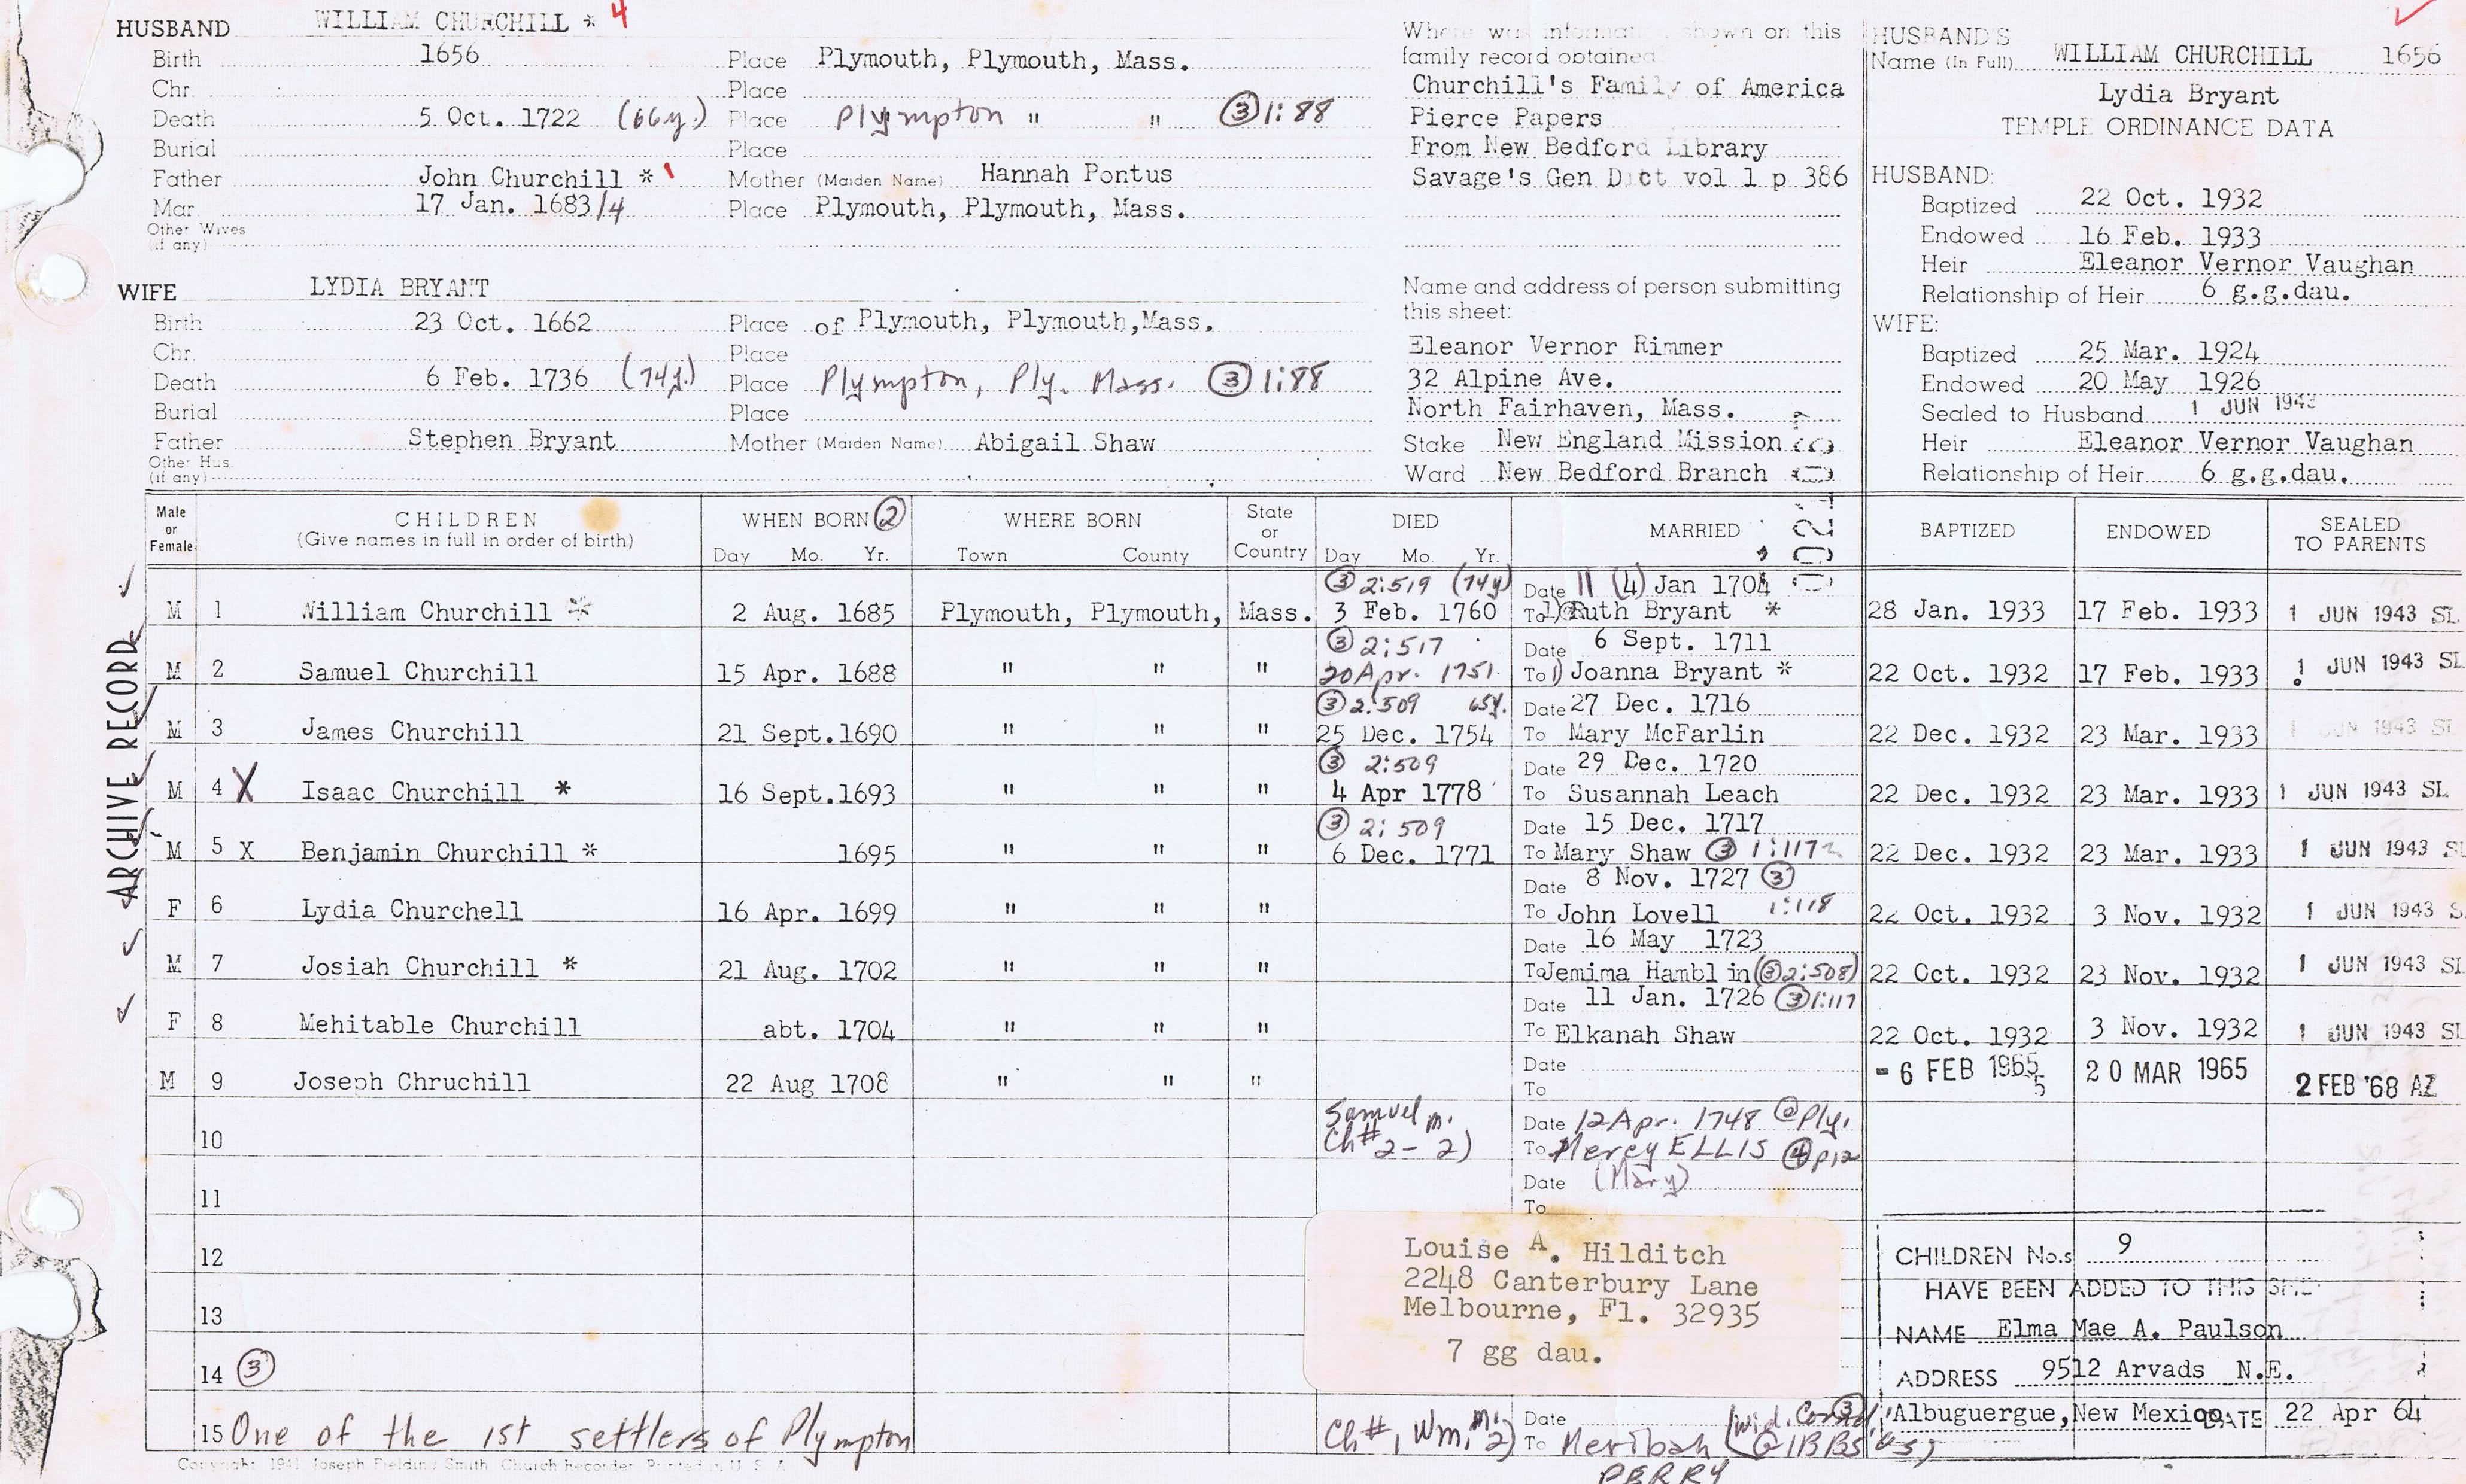 HUSBAND WILLIAM CHURCHILL * 4
Birth 1656 Place Plymouth, Plymouth, Mass.
Chr. Place
Death 5 Oct. 1722 (66y.) Place Plympton " " ③ 1:88
Burial Place
Father John Churchill * Mother (Maiden Name) Hannah Pontus
Mar. 17 Jan. 1683/4 Place Plymouth, Plymouth, Mass.
Other Wives
(if any)
WIFE LYDIA BRYANT
Birth 23 Oct. 1662 Place of Plymouth, Plymouth, Mass.
Chr. Place
Death 6 Feb. 1736 (74y.) Place Plympton, Ply. Mass. ③ 1:88
Burial Place
Father Stephen Bryant Mother (Maiden Name) Abigail Shaw
Other Hus.
(if any)
Where was information shown on this
family record obtained
Churchill's Family of America
Pierce Papers
From New Bedford Library
Savage's Gen Dict vol 1 p 386
Name and address of person submitting
this sheet:
Eleanor Vernor Rimmer
32 Alpine Ave.
North Fairhaven, Mass.
Stake New England Mission
Ward New Bedford Branch
HUSBAND'S
Name (In Full) WILLIAM CHURCHILL 1656
Lydia Bryant
TEMPLE ORDINANCE DATA
HUSBAND:
Baptized 22 Oct. 1932
Endowed 16 Feb. 1933
Heir Eleanor Vernor Vaughan
Relationship of Heir 6 g.g.dau.
WIFE:
Baptized 25 Mar. 1924
Endowed 20 May 1926
Sealed to Husband 1 JUN 1943
Heir Eleanor Vernor Vaughan
Relationship of Heir 6 g.g.dau.
ARCHIVE RECORD
Male or Female
CHILDREN
(Give names in full in order of birth)
WHEN BORN ②
Day Mo. Yr.
WHERE BORN
Town County
State or Country
DIED
Day Mo. Yr.
MARRIED
BAPTIZED
ENDOWED
SEALED TO PARENTS
③ 2:519 (74y) Date 11 (4) Jan 1704
M 1 William Churchill * 2 Aug. 1685 Plymouth, Plymouth, Mass. 3 Feb. 1760 To 1) Ruth Bryant * 28 Jan. 1933 17 Feb. 1933 1 JUN 1943 SL
③ 2:517 Date 6 Sept. 1711
M 2 Samuel Churchill 15 Apr. 1688 " " " 20 Apr. 1751 To 1) Joanna Bryant * 22 Oct. 1932 17 Feb. 1933 1 JUN 1943 SL
③ 2:509 65y. Date 27 Dec. 1716
M 3 James Churchill 21 Sept. 1690 " " " 25 Dec. 1754 To Mary McFarlin 22 Dec. 1932 23 Mar. 1933 1 JUN 1943 SL
③ 2:509 Date 29 Dec. 1720
M 4 X Isaac Churchill * 16 Sept. 1693 " " " 4 Apr 1778 To Susannah Leach 22 Dec. 1932 23 Mar. 1933 1 JUN 1943 SL
③ 2:509 Date 15 Dec. 1717
M 5 X Benjamin Churchill * 1695 " " " 6 Dec. 1771 To Mary Shaw ③ 22 Dec. 1932 23 Mar. 1933 1 JUN 1943 S
Date 8 Nov. 1727 ③
F 6 Lydia Churchell 16 Apr. 1699 " " " To John Lovell 1:118 22 Oct. 1932 3 Nov. 1932 1 JUN 1943 S
Date 16 May 1723
M 7 Josiah Churchill * 21 Aug. 1702 " " " To Jemima Hamblin (③ 2:508) 22 Oct. 1932 23 Nov. 1932 1 JUN 1943 SL
Date 11 Jan. 1726 ③ 1:117
F 8 Mehitable Churchill abt. 1704 " " " To Elkanah Shaw 22 Oct. 1932 3 Nov. 1932 1 JUN 1943 SL
Date
M 9 Joseph Chruchill 22 Aug 1708 " " " To - 6 FEB 1965 5 20 MAR 1965 2 FEB '68 AZ
Samuel m. Date 12 Apr. 1748 @ Ply.
10 Ch# 2-2) To Mercy ELLIS ④ p12
Date (Mary)
11 To
12
13
14 ③
Louise A. Hilditch
2248 Canterbury Lane
Melbourne, Fl. 32935
7 gg dau.
CHILDREN No.s 9
HAVE BEEN ADDED TO THIS SHE
NAME Elma Mae A. Paulson
ADDRESS 9512 Arvads N.E.
Albuguergue, New Mexico DATE 22 Apr 64
15 One of the 1st settlers of Plympton
Ch#1, Wm. m. 2) Date
To Meribah
PERRY
Copyright 1941 Joseph Fielding Smith, Church Recorder Printed in U. S. A.